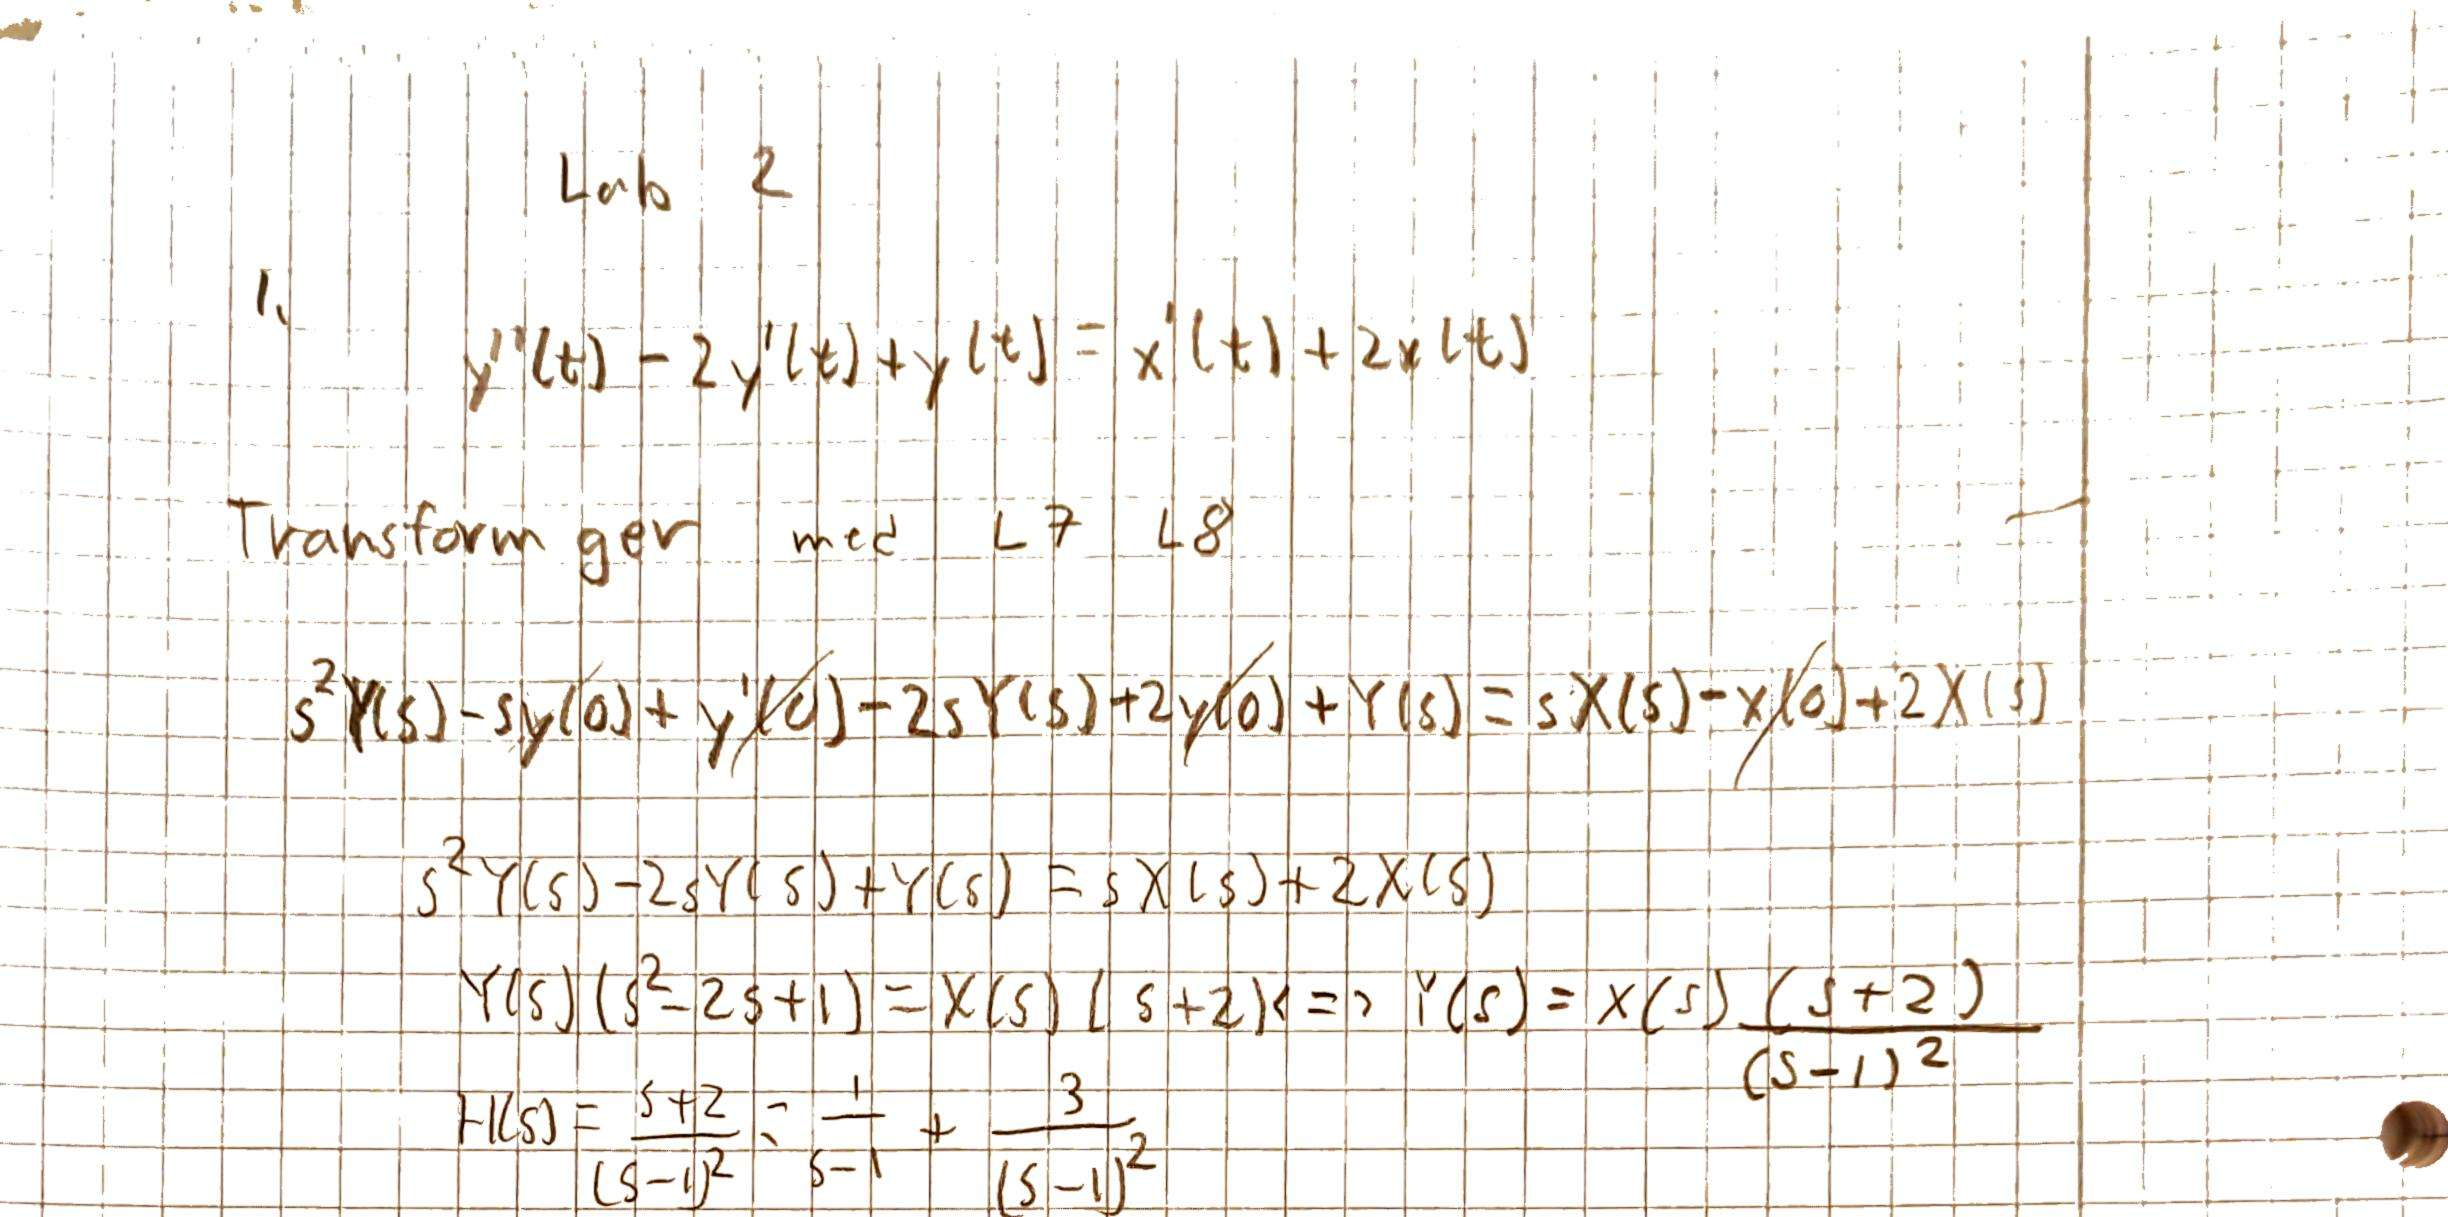 Lab 2
1.
y''(t) - 2y'(t) + y(t) = x'(t) + 2x(t)
Transform ger med L7 L8
s²Y(s) - sy(0) + y'(0) - 2sY(s) + 2y(0) + Y(s) = sX(s) - x(0) + 2X(s)
s²Y(s) - 2sY(s) + Y(s) = sX(s) + 2X(s)
Y(s)(s² - 2s + 1) = X(s)(s+2) <=> Y(s) = X(s) (s+2)/(s-1)²
H(s) = (s+2)/(s-1)² = 1/(s-1) + 3/(s-1)²